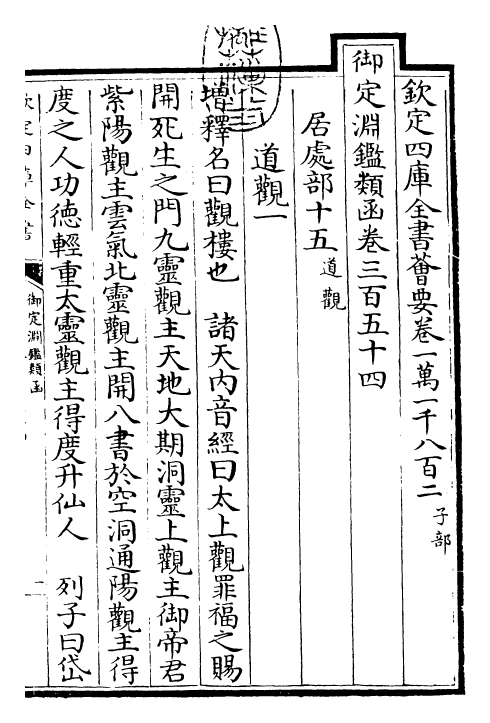 欽定四庫全書薈要卷一萬一千八百二 子部
御定淵鑑類函卷三百五十四
居處部十五 道觀
道觀一
增釋名曰觀樓也 諸天內音經曰太上觀罪福之賜
開死生之門九靈觀主天地大期洞靈上觀主御帝君
紫陽觀主雲氣北靈觀主開八書於空洞通陽觀主得
度之人功德輕重太靈觀主得度升仙人 列子曰岱
御定淵鑑類函